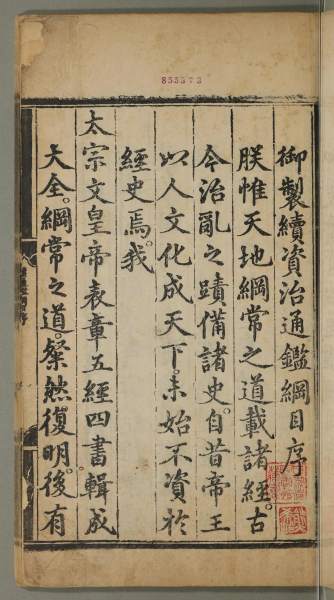 853373
御製續資治通鑑綱目序
朕惟天地綱常之道載諸經。古
今治亂之蹟備諸史。自昔帝王
以人文化成天下。未始不資於
經史焉。我
太宗文皇帝表章五經四書。輯成
大全。綱常之道。粲然復明。後有